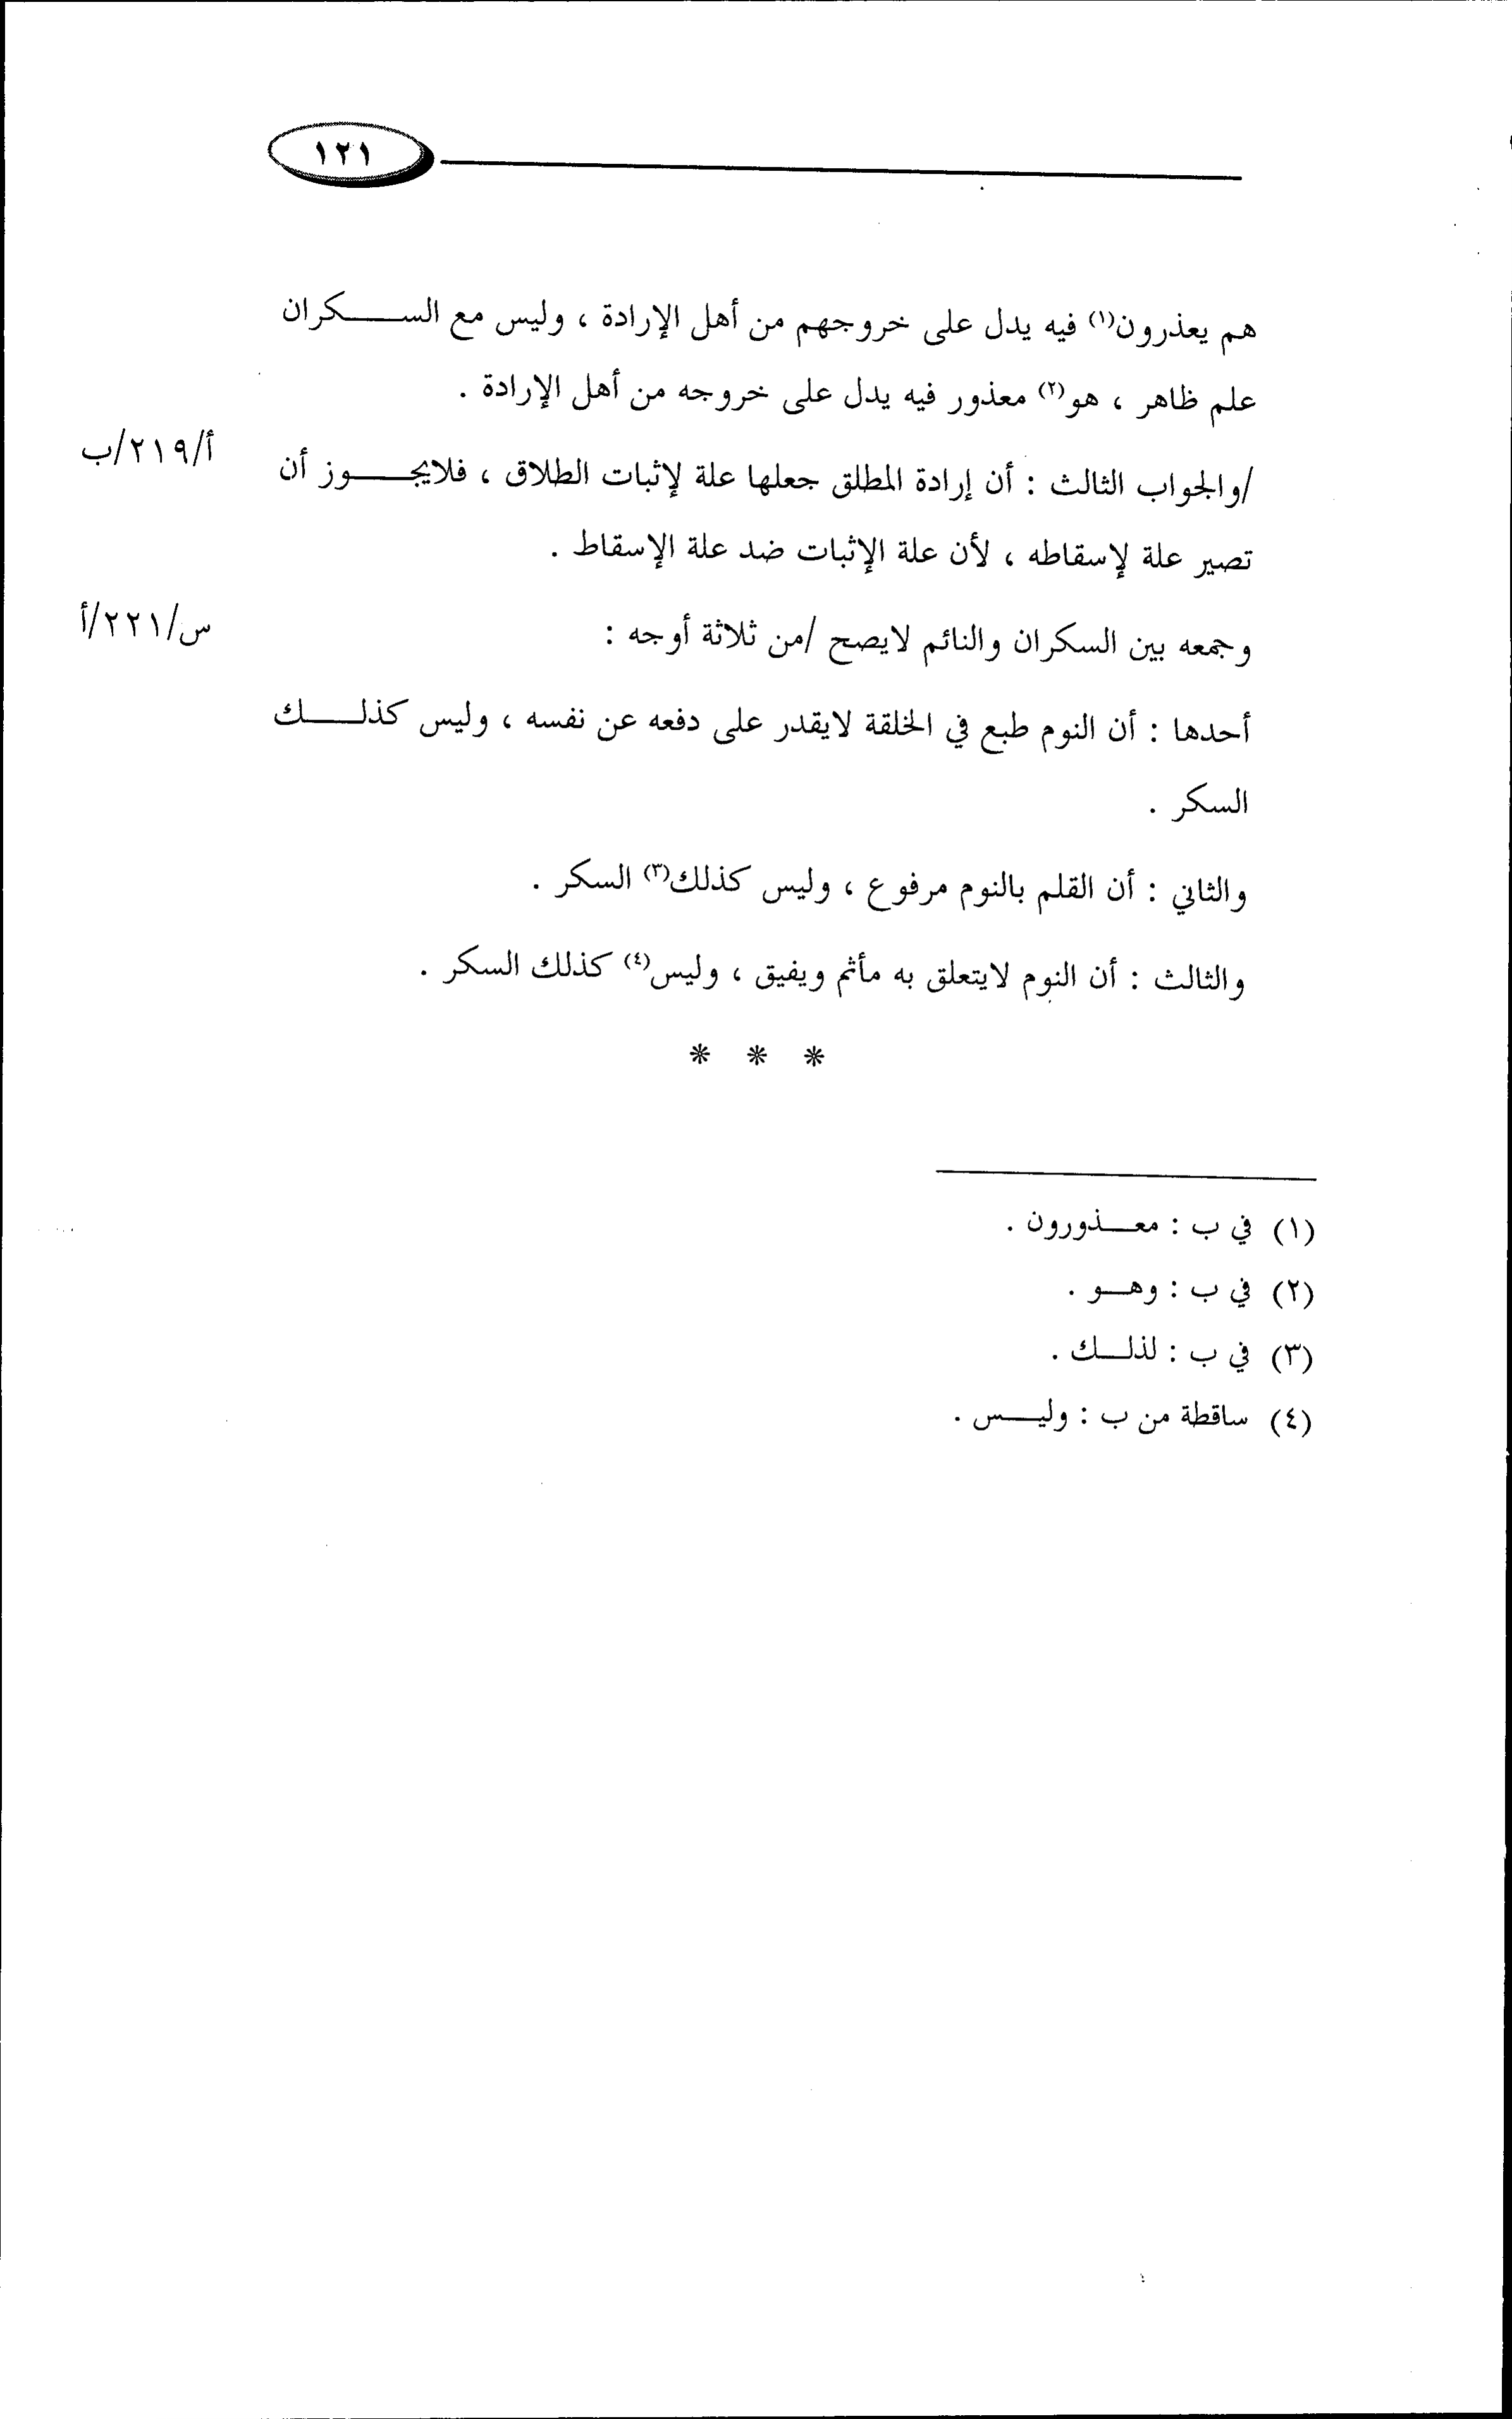 ١٢١
هم يعذرون(١) فيه يدل على خروجهم من أهل الإرادة ، وليس مع الســـكران
علم ظاهر ، هو(٢) معذور فيه يدل على خروجه من أهل الإرادة .
أ/٢١٩/ب
/والجواب الثالث : أن إرادة المطلق جعلها علة لإثبات الطلاق ، فلايجـــوز أن
تصير علة لإسقاطه ، لأن علة الإثبات ضد علة الإسقاط .
س/٢٢١/أ
وجمعه بين السكران والنائم لايصح /من ثلاثة أوجه :
أحدها : أن النوم طبع في الخلقة لايقدر على دفعه عن نفسه ، وليس كذلـــك
السكر .
والثاني : أن القلم بالنوم مرفوع ، وليس كذلك(٣) السكر .
والثالث : أن النوم لايتعلق به مأثم ويفيق ، وليس(٤) كذلك السكر .
* * *
(١) في ب : معـــذورون .
(٢) في ب : وهـــو .
(٣) في ب : لذلـــك .
(٤) ساقطة من ب : وليـــس .